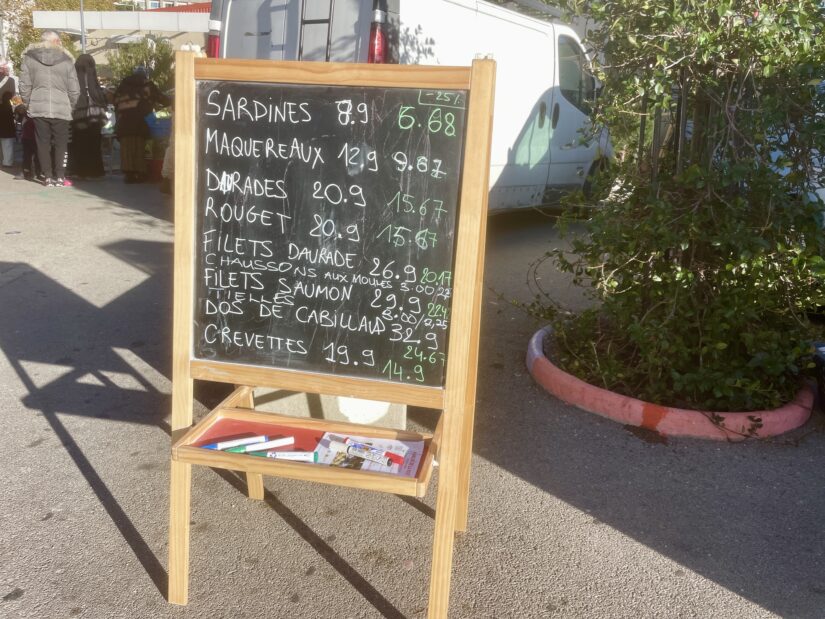 -25%
SARDINES 8.9 6.68
MAQUEREAUX 12.9 9.67
DAURADES 20.9 15.67
ROUGET 20.9 15.67
FILETS DAURADE 26.9 20.17
CHAUSSONS AUX MOULES 3.00/
FILETS SAUMON 29.9
TIELLES 3.00/2,25
DOS DE CABILLAUD 32.9 24.67
CREVETTES 19.9 14.9